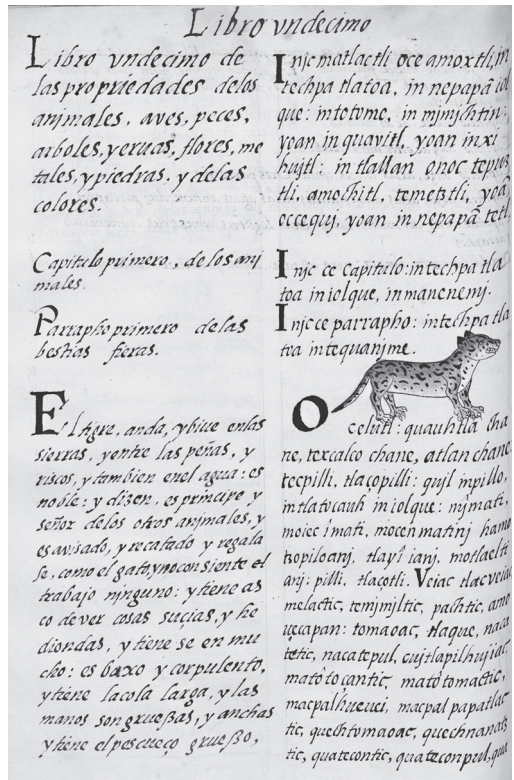 Libro vndecimo
Libro vndecimo de
las propriedades delos
animales, aves, peces,
arboles, yeruas, flores, me
tales, y piedras, y delas
colores.
Capitulo primero, de los ani
males.
Parrapho primero delas
bestias fieras.
El tigre, anda, y biue enlas
sierras, y entre las peñas, y
riscos, y tambien enel agua: es
noble: y dizen, es principe y
señor delos otros animales, y
es auisado, y recatado y regala
se, como el gato, y no consiente el
trabajo ninguno: y tiene as
co de ver cosas suçias, y he
diondas, y tiene se en mu
cho: es baxo y corpulento,
y tiene la cola larga, y las
manos son grueßas, y anchas
y tiene el pescueço grueßo,
Injc matlactli oce amoxtli, in
techpa tlatoa, in nepapã iol
que: in totome, in mjmjchtin:
yoan in quavitl, yoan in xi
hujtl: in tlallan onoc tepuz
tli, amochitl, temetztli, yoã
occequj, yoan in nepapã tetl.
Injc ce capitulo: intechpa tla
toa in iolque, in manenemj.
Injc ce parrapho: intechpa tla
toa in tequanjme.
Ocelutl: quauhtla cha
ne, texcalco chane, atlan chane
tecpilli, tlaçopilli: qujl inpillo,
intlatocauh in iolque: mjmati,
moiec îmati, mocenmatinj hamo
tzopiloanj, tlayî ianj, motlaelti
anj: pilli, tlaçotli. Veiac tlacveiac
melactic, temjmjltic, pachtic, amo
vecapan: tomaoac, tlaque, naca
tetic, nacatepul, cujtlapilhujiac,
matotocantic, matotomactic,
macpalhueuei, macpal papatlac
tic, quechtomaoac, quechnanatz
tic, quatecontic, quateconpul, qua